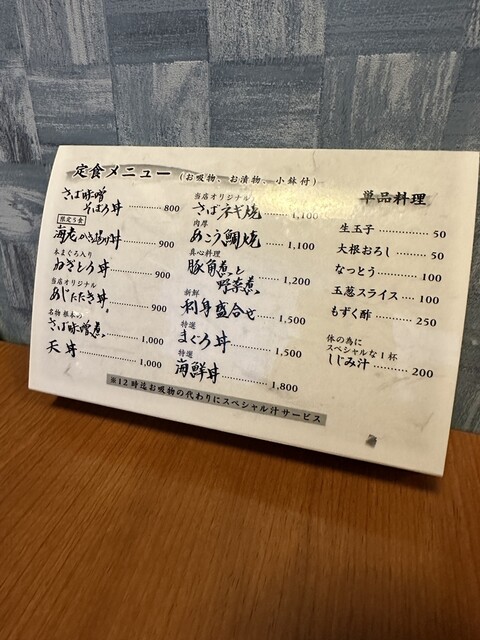 定食メニュー (お吸物、お漬物、小鉢付)
さば味噌
そぼろ丼 ………… 800
限定5食
海老かき揚げ丼 ……… 900
本まぐろ入り
ねぎとろ丼 ………… 900
当店オリジナル
あじたたき丼 ……… 900
名物 根本の
さば味噌煮 ………… 1,000
天丼 ………… 1,000
当店オリジナル
さばネギ焼 ………… 1,100
肉厚
あこう鯛焼 ………… 1,100
真心料理
豚角煮と
野菜煮 ………… 1,200
新鮮
刺身盛合せ ………… 1,500
特選
まぐろ丼 ………… 1,500
特選
海鮮丼 ………… 1,800
単品料理
生玉子 ………… 50
大根おろし ……… 50
なっとう ………… 100
玉葱スライス … 100
もずく酢 ………… 250
休の為に
スペシャルな1杯
しじみ汁 ………… 200
※12時迄お吸物の代わりにスペシャル汁サービス